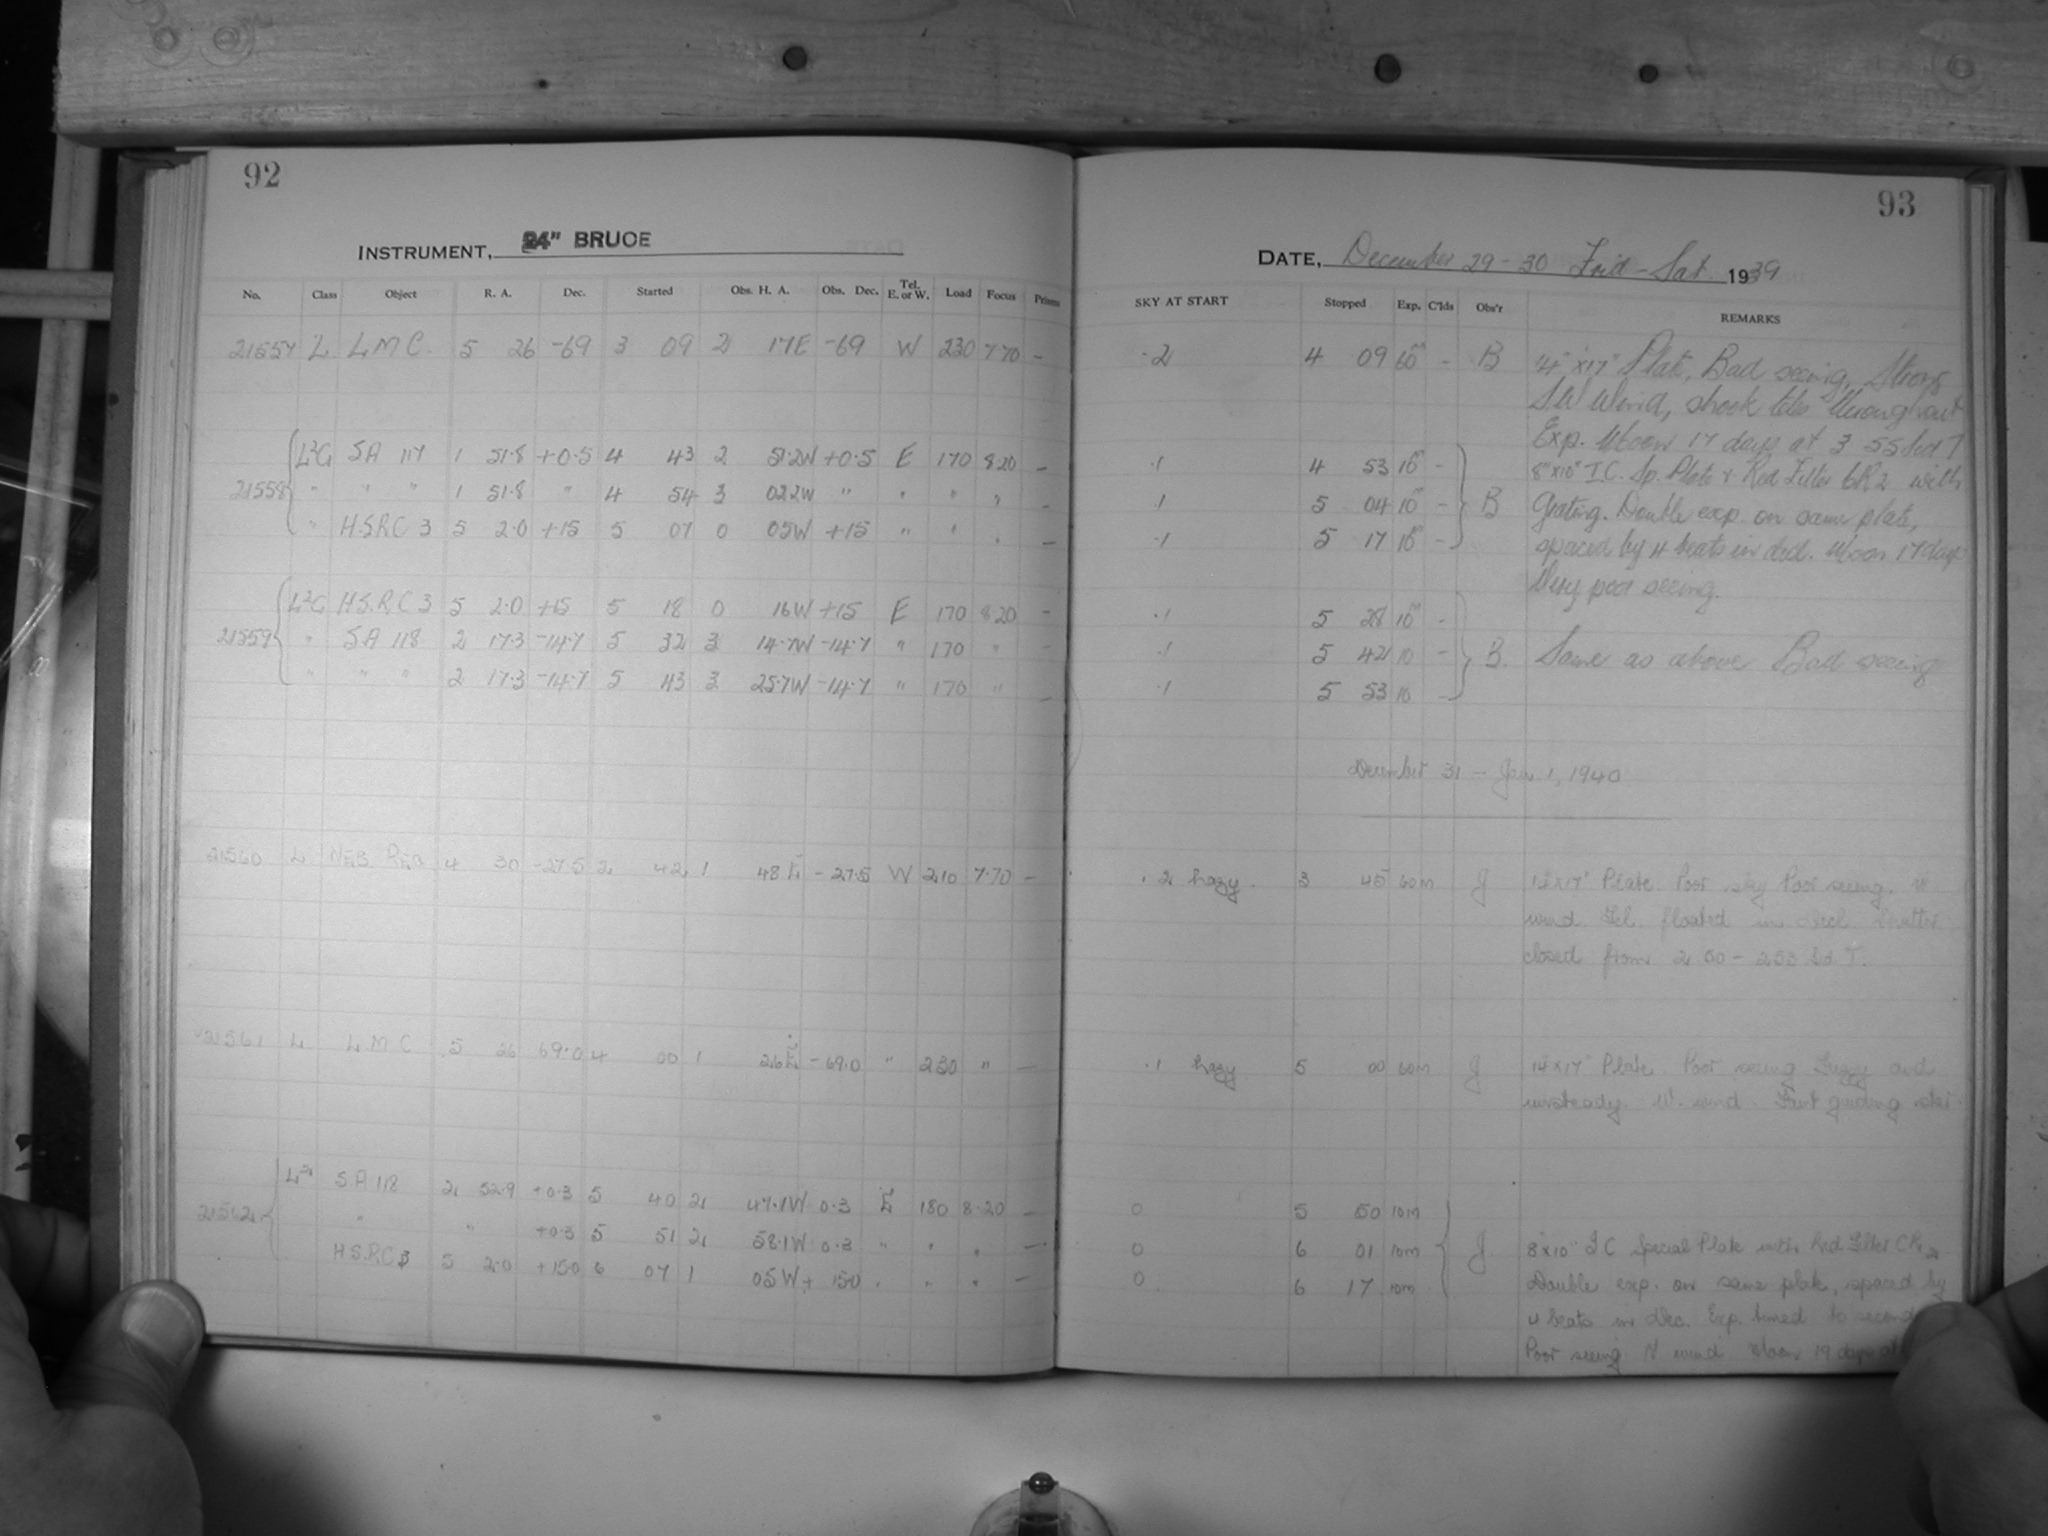 92
INSTRUMENT, 24" BRUCE
No. Class Object R. A. Dec. Started Obs. H. A. Obs. Dec. Tel. E. or W. Load Focus Prisms
21557 L L M C. 5 26 -69 3 09 2 17E -69 W 230 7.70 -
L²G SA 117 1 51.8 +0.5 4 43 2 51.2W +0.5 E 170 8.20 -
21558 " " " 1 51.8 " 4 54 3 02.2W " " " "
" H.S.R.C 3 5 2.0 +15 5 07 0 05W +15 " " " -
L²G H.S.R.C 3 5 2.0 +15 5 18 0 16W +15 E 170 8.20 -
21559 " SA 118 2 17.3 -14.7 5 32 3 14.7W -14.7 " 170 "
" " " 2 17.3 -14.7 5 43 3 25.7W -14.7 " 170 " -
21560 L NEB. REG 4 30 -27.5 2 42 1 48 E -27.5 W 210 7.70 -
21561 L L M C 5 26 69.0 4 00 1 26 E -69.0 " 230 " -
SA 118 2 52.9 +0.3 5 40 2 47.1W 0.3 E 180 8.20 -
21562 " " +0.3 5 51 2 58.1W 0.3 " " " -
H.S.R.C 3 5 2.0 +15.0 6 07 1 05W + 15.0 " " " -
93
DATE, December 29-30 Frid-Sat. 1939
SKY AT START Stopped Exp. C'lds Obs'r REMARKS
.2 4 09 60m - B 14"x17" Plate, Bad seeing, Strong
SW Wind, shook tele throughout
Exp. Moon 17 days at 3 55 Sid T
.1 4 53 10m - 8"x10" I.C. Sp. Plate + Red Filter with
.1 5 04 10m - B Grating. Double exp. on same plate,
.1 5 17 10m - spaced by 4 beats in decl. Moon 17 days
Very poor seeing.
.1 5 28 10m -
.1 5 42 10 - B. Same as above Bad seeing
.1 5 53 10 -
December 31 - Jan 1, 1940
.2 hazy. 3 45 60m J 14"x17" Plate. Poor sky Poor seeing. W
wind. Tel. floated in decl. Shutter
closed from 2 50 - 2 53 Sd T.
.1 hazy 5 00 60m J 14"x17" Plate. Poor seeing Fuzzy and
unsteady. W. wind. Faint guiding star.
0 5 50 10m
0 6 01 10m J 8"x10" I C Special Plate with Red Filter
0 6 17 10m Double exp. on same plate, spaced by
4 beats in Dec. Exp. timed to second
Poor seeing N wind Moon 19 days at